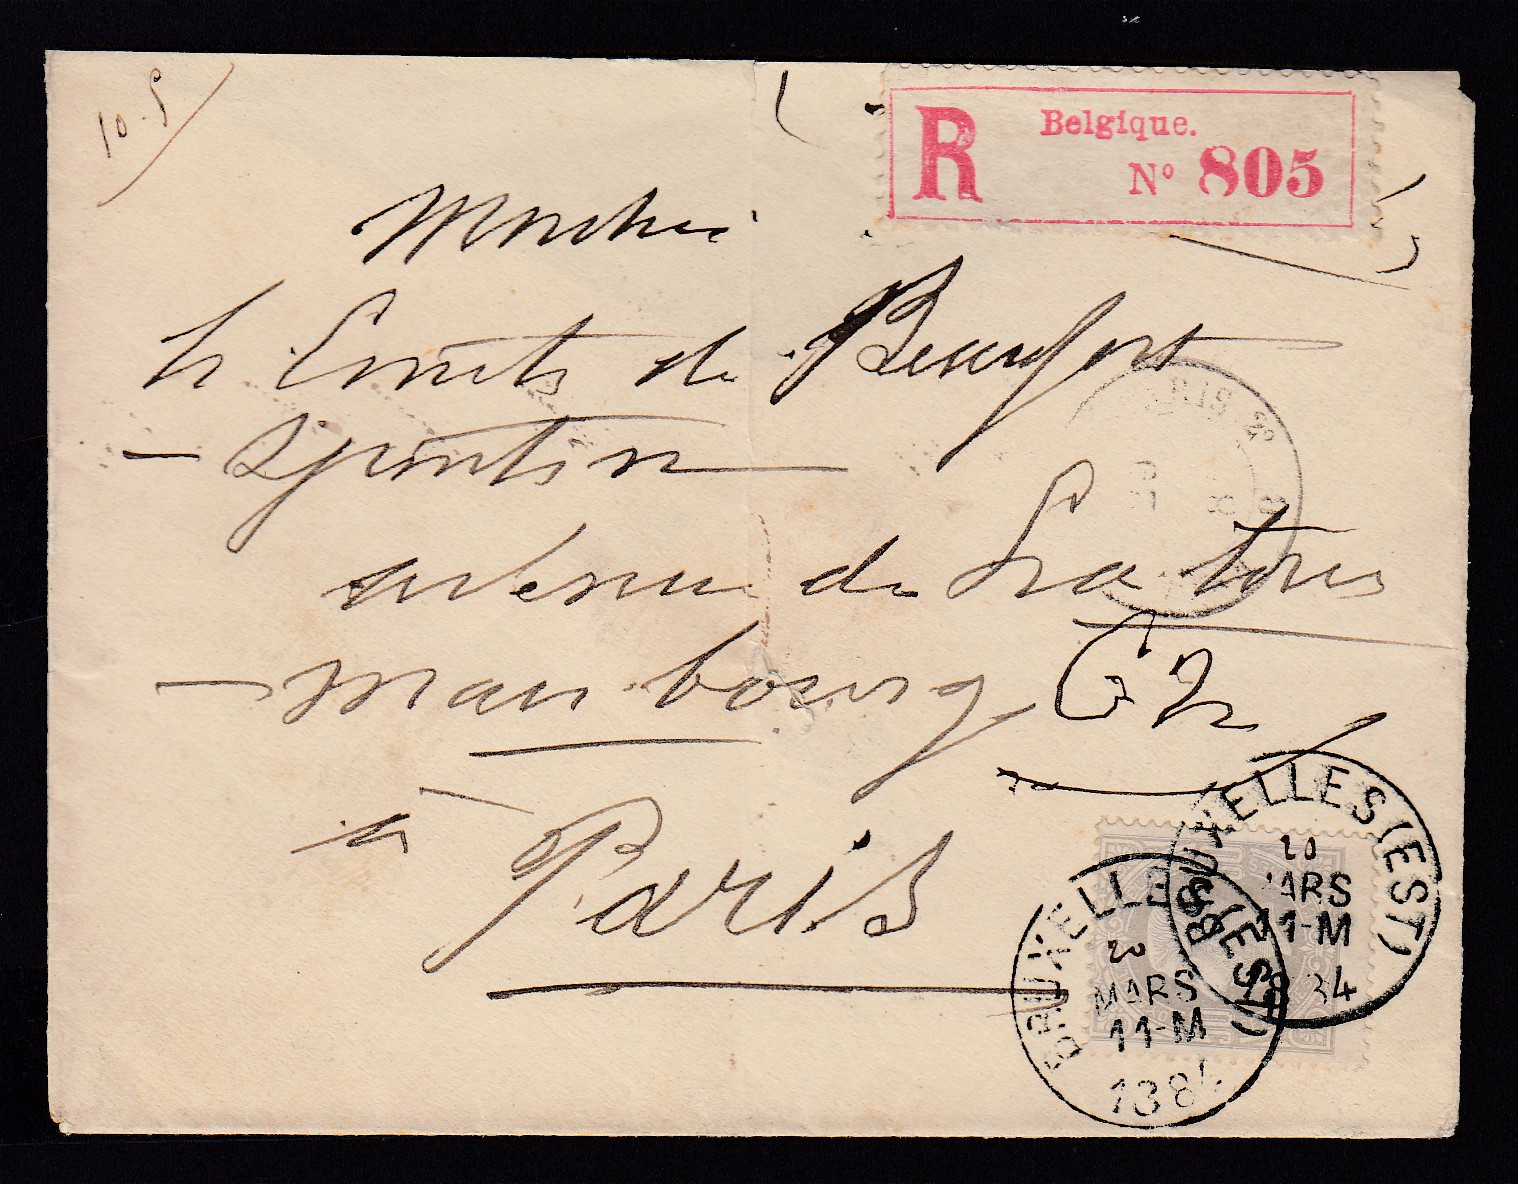 10.5
R Belgique.
N° 805
Monsieur
le Comte de Beaufort
- Spontin -
avenue de La Tour
- Maubourg
à Paris
PARIS
BRUXELLES (EST)
20
MARS
11-M
84
BRUXELLES (EST)
20
MARS
11-M
1884